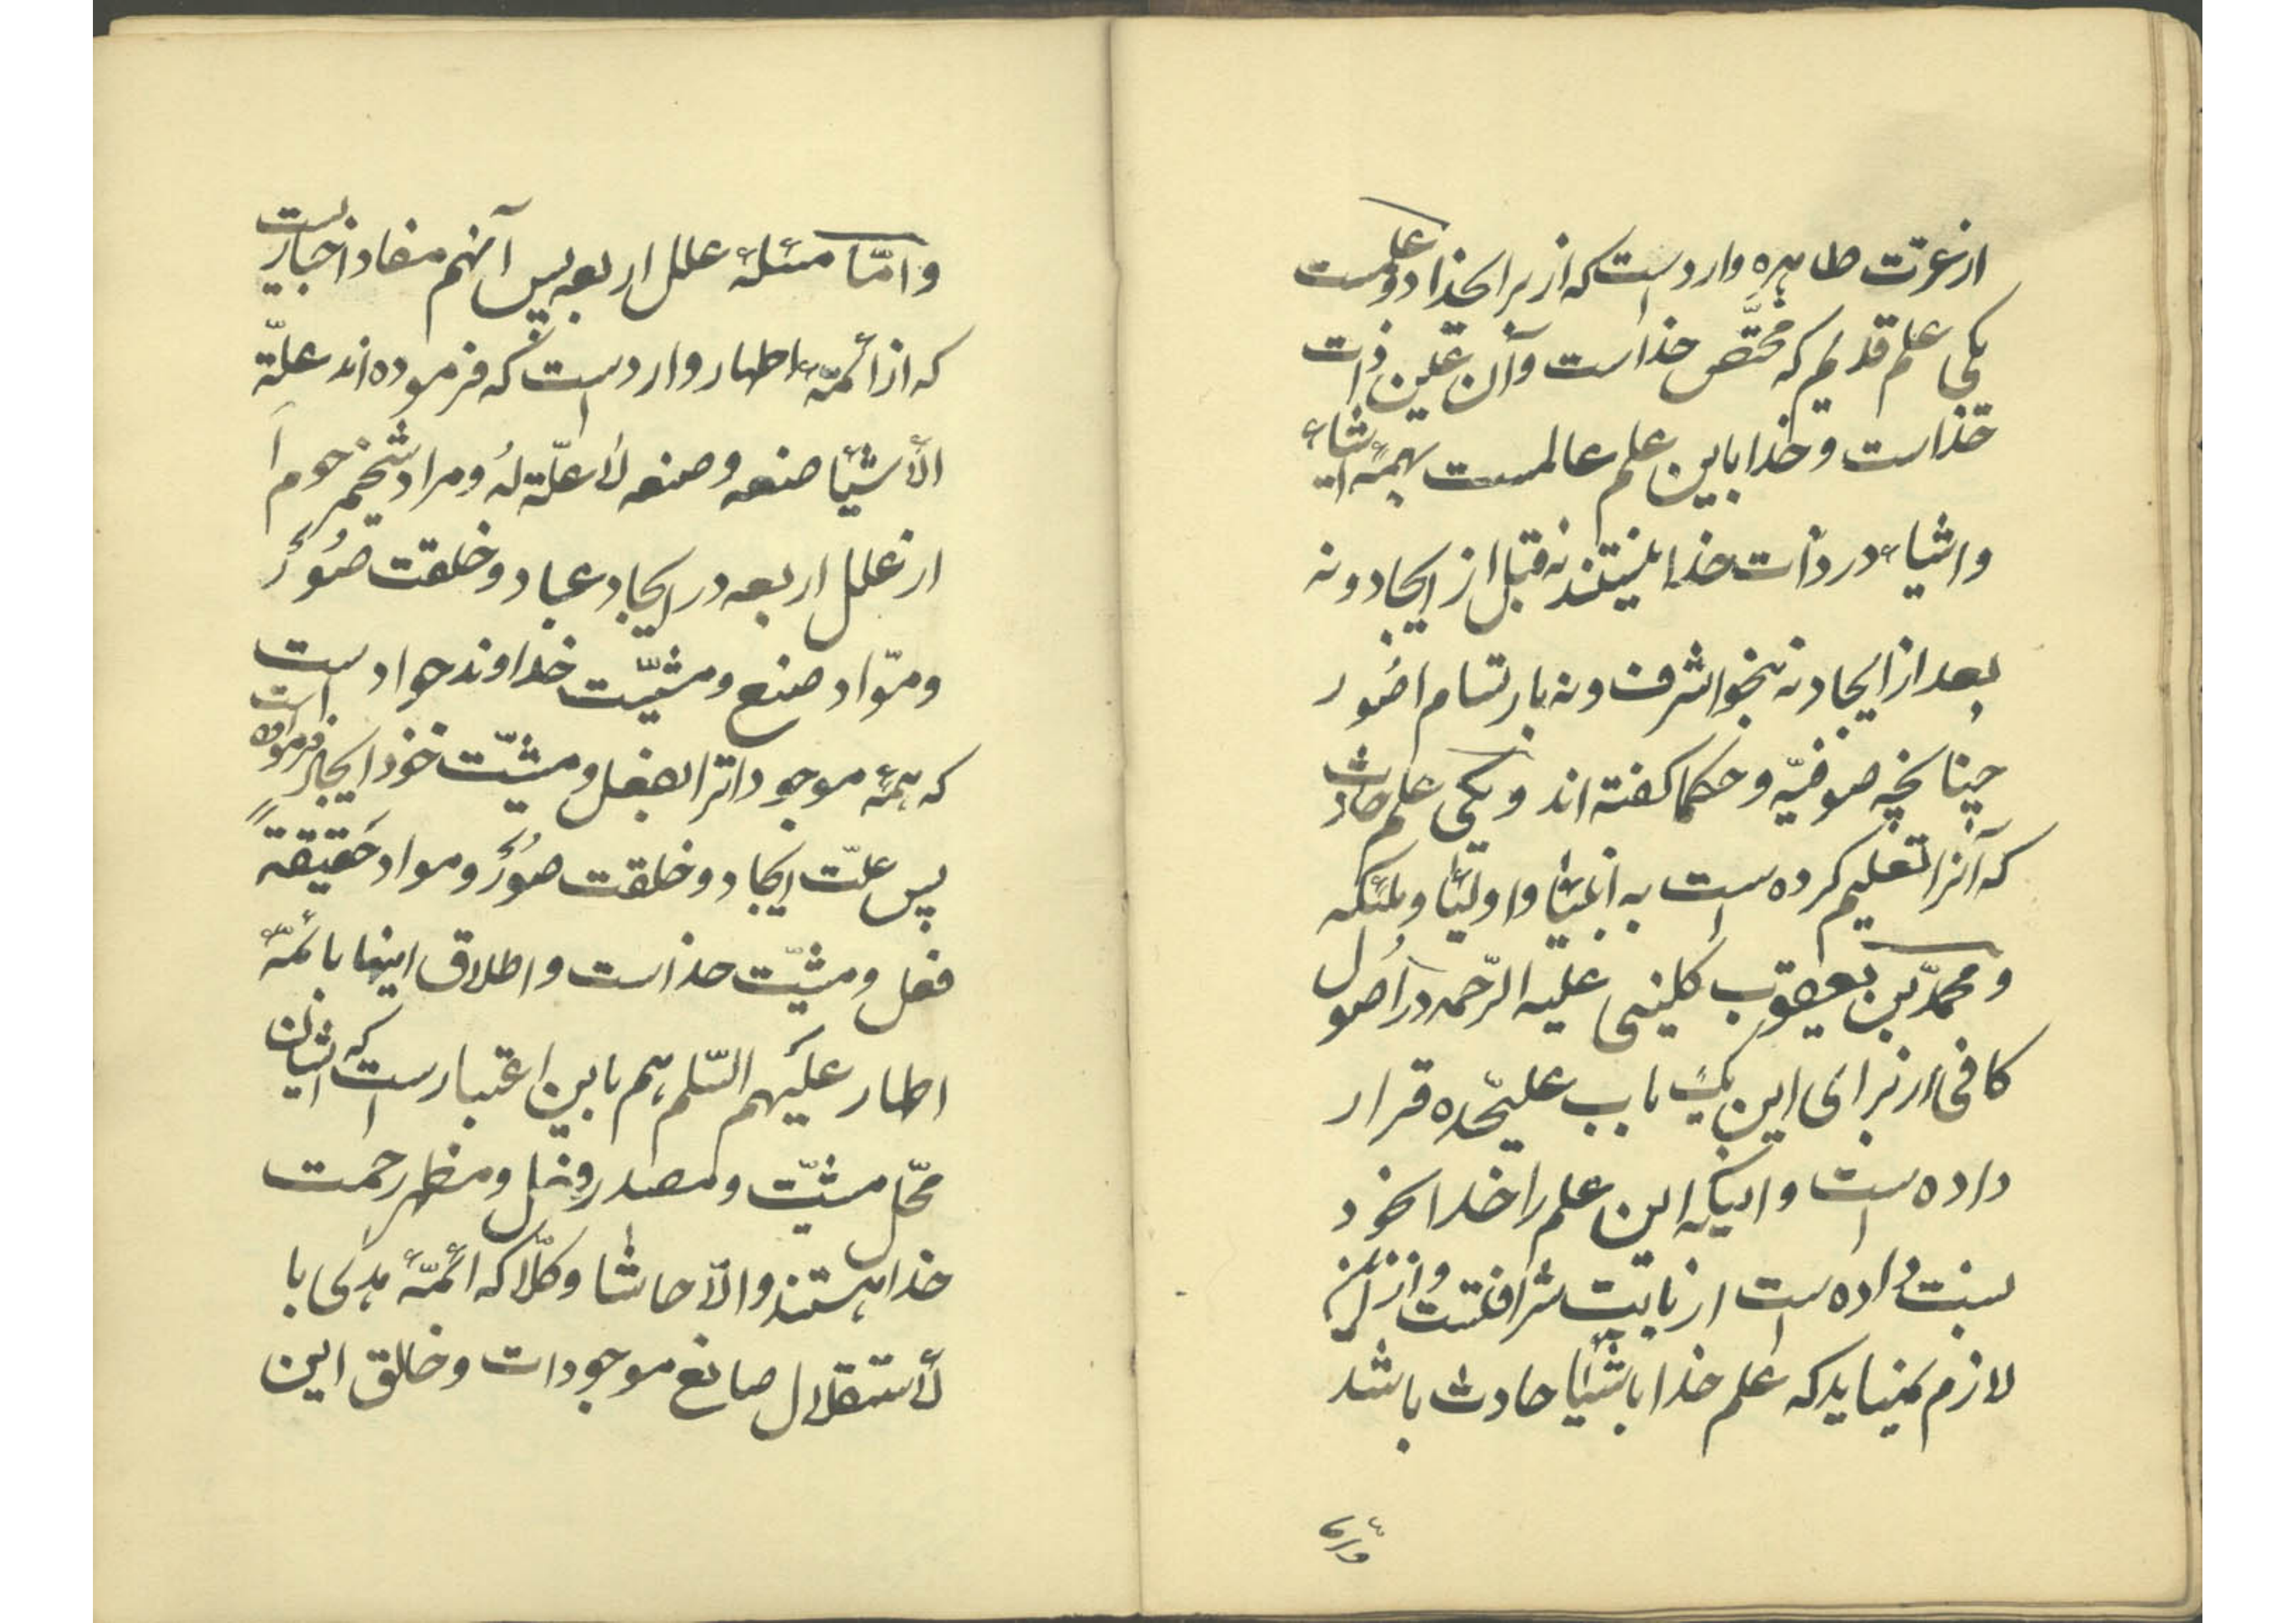 از عترت طاهره وارد است که از برای خدا دو علمست
یکی علم قدیم که مختصّ خداست و آن عین ذات
خداست و خدا باین علم عالمست بهمهٔ اشیاء
و اشیاء در ذات خدا نیستند نه قبل از ایجاد و نه
بعد از ایجاد نه بنحو اشرف و نه بارتسام صُور
چنانچه صوفیّه و حکما کفته اند و یکی علم حادث
که آنرا تعلیم کرده است به انبیٓا و اولیٓا و ملئکه
و محمّد بن یعقوب کلینی علیه الرّحمه در اصول
کافی از برای این یک باب علیحّده قرار
داده است و اینکه این علم را خدا بخود
نسبت داده است از بابت شرافتست و از این
لازم نمینماید که علم خدا باشیٓا حادث باشد
و امّا
و امّا مسئلهٔ علل اربعه پس آنهم مفاد اخباریست
که از ائمّهٔ اطهار وارد است که فرموده اند علّة
الأشیٓا صنعه و صنعه لا علّة لهُ و مراد شیخ مرحوم
از علل اربعه در ایجاد عباد و خلقت صُوَر
و موّاد صنع و مشیّت خداوند جواد است
که همهٔ موجوداترا بفعل و مشیّت خود ایجاد فرموده است
پس علّت ایجاد و خلقت صُوَر و مواد حَقیقةً
فعل و مشیّت خداست و اطلاق اینها بائمّهٔ
اطهار علَیهم السّلم هم باین اعتبار است که ایشان
محّل مشیّت و مصدر فعل و مظهر رحمت
خدا هستند و الّا حاشا و کلّا که ائمّهٔ هدی با
لأستقلال صانع موجودات و خالق این